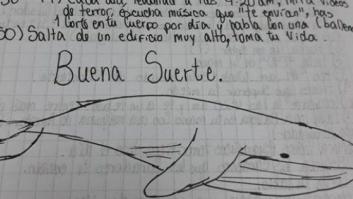 Cada día, levántate a las 4:20 am, mira videos
de terror, escucha música que "te envían", haz
1 corte en tu cuerpo por día y habla con una (ballena
50) Salta de un edificio muy alto, toma tu vida.
Buena Suerte.